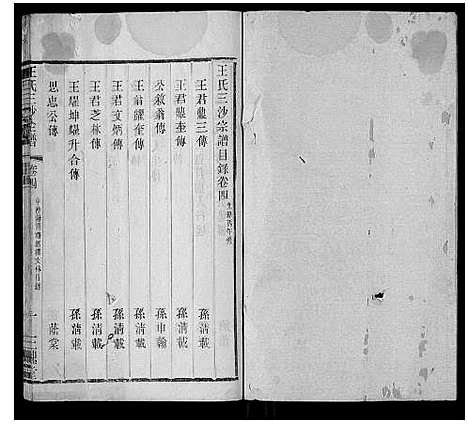 王氏三沙宗譜目錄卷四
王君鼎三傳 孫清載
王君鼎奎傳 孫清載
公敘翁傳 孫申翰
王翁耀奎傳 孫清載
王君文炳傳 孫清載
王君芝林傳 孫清載
王耀坤耀升合傳 孫清載
思忠公傳 蔭棠
王氏三沙宗譜 卷四